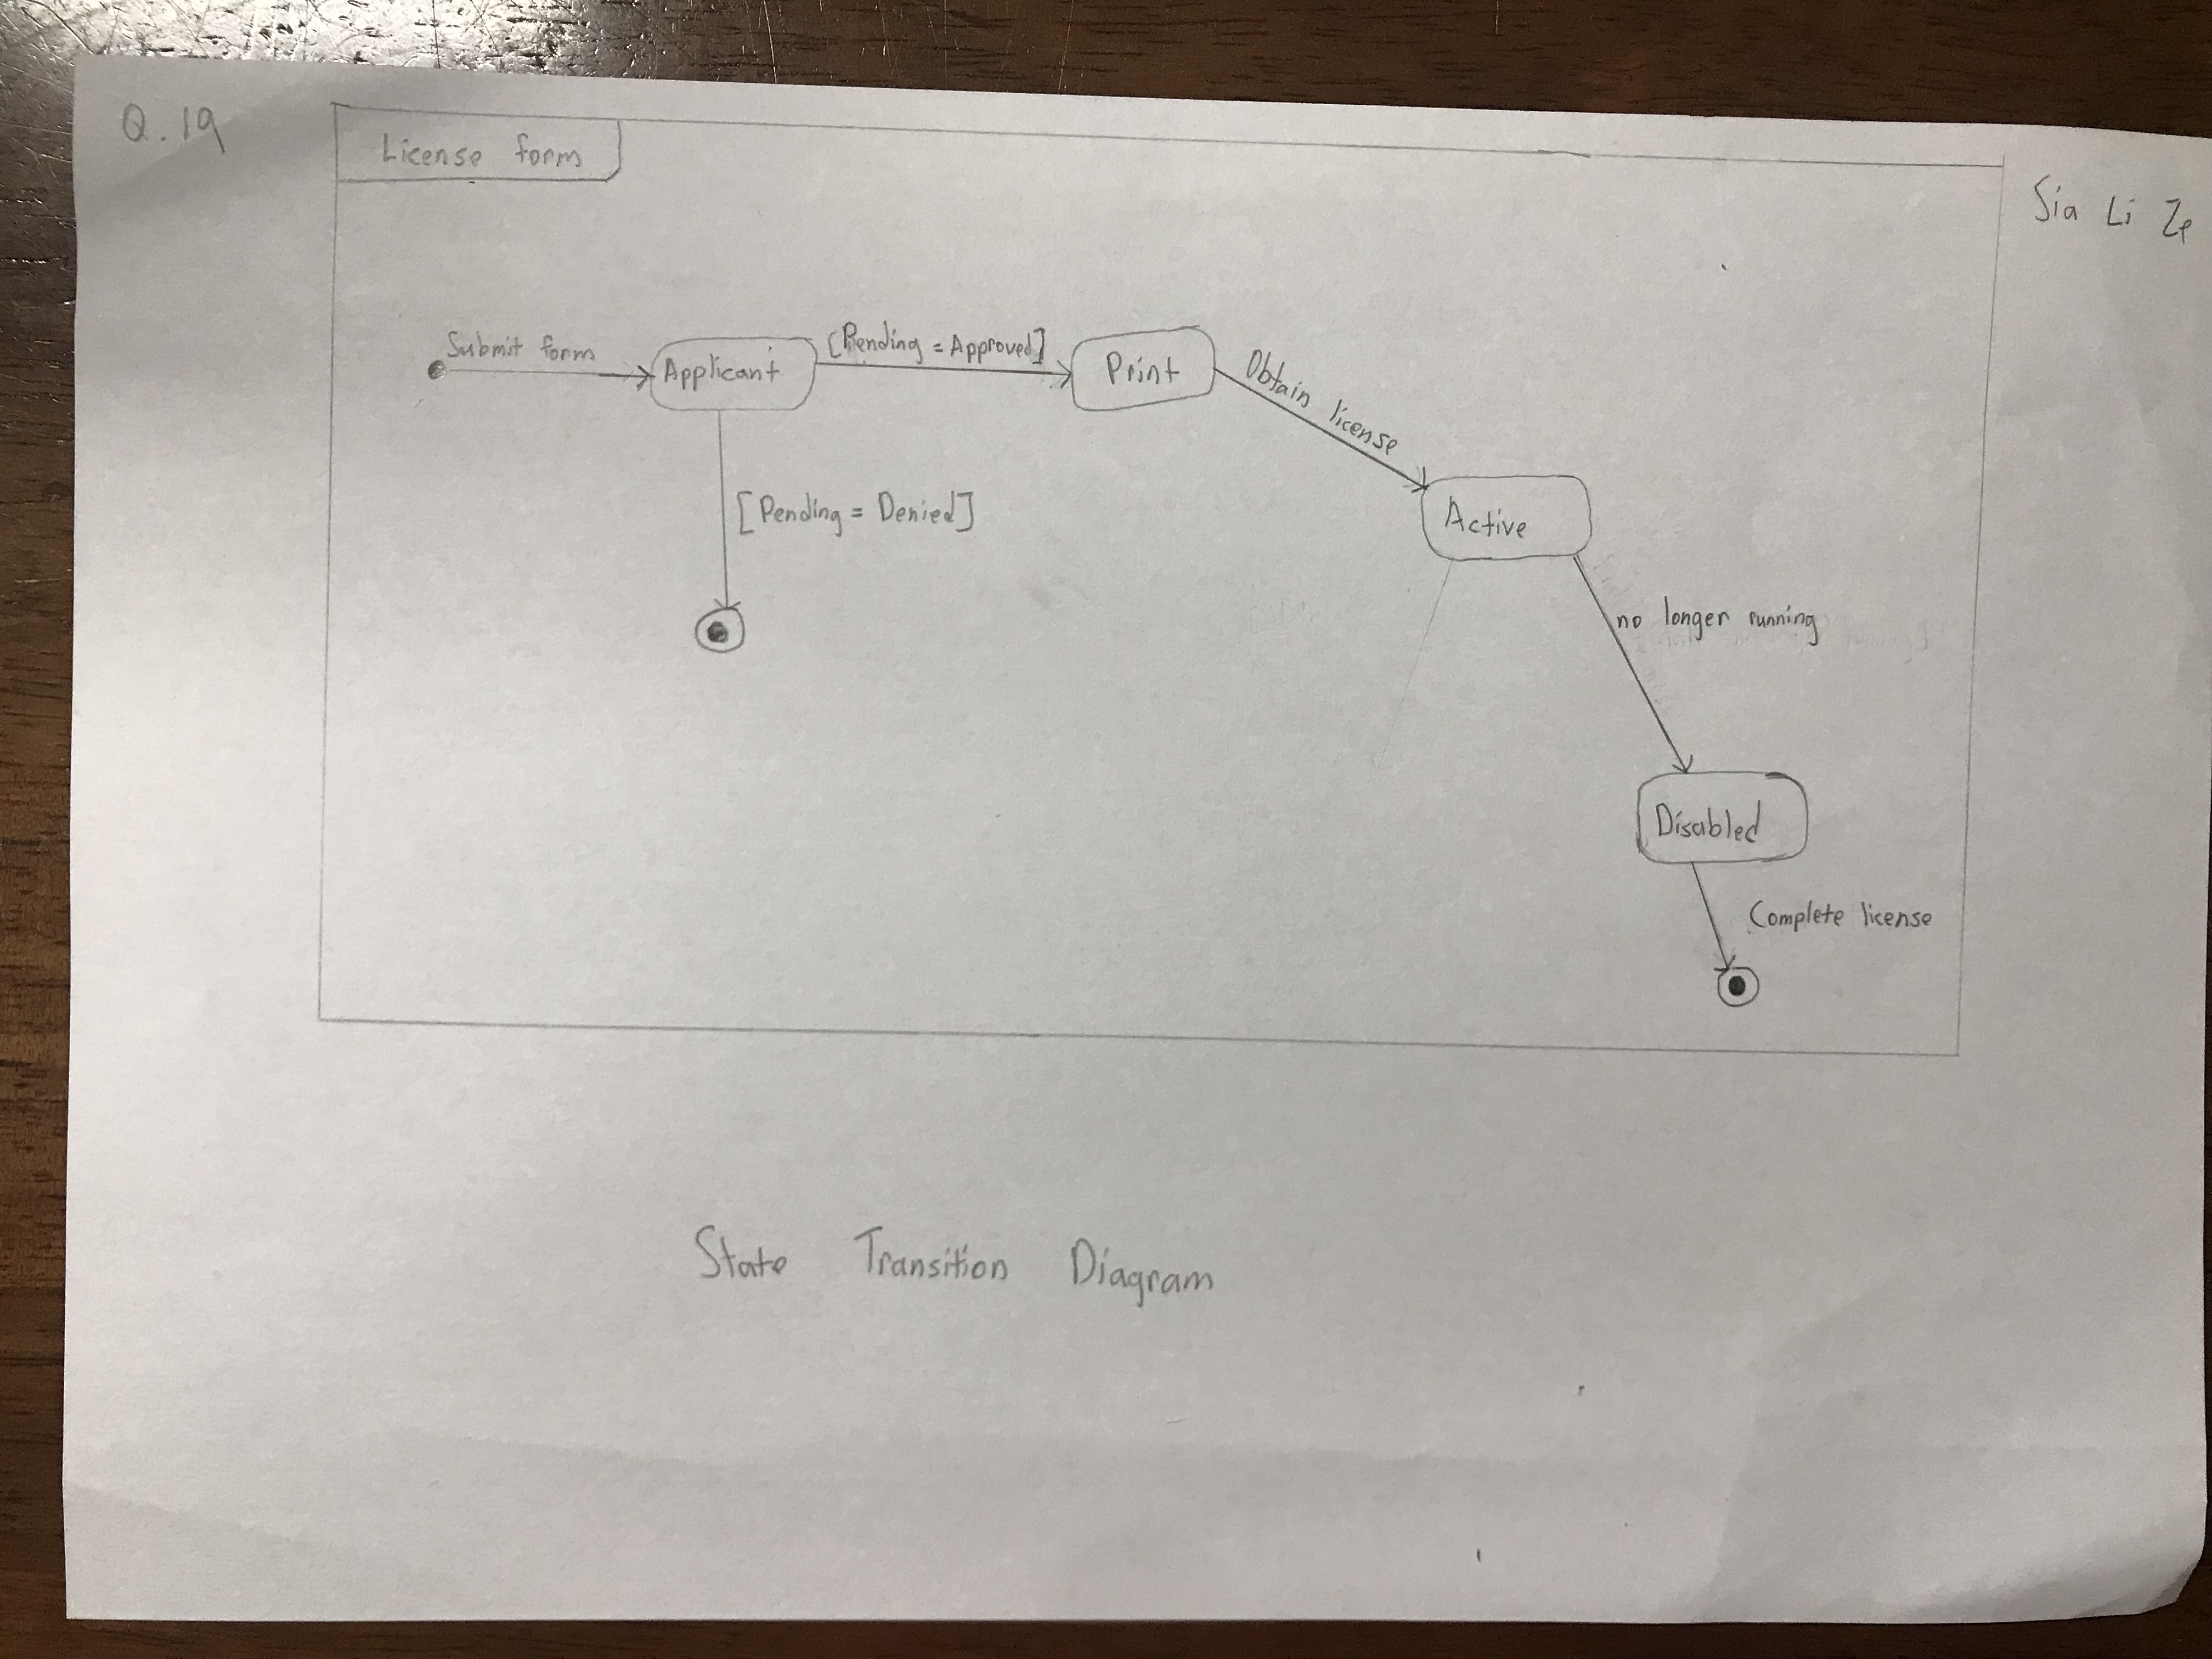 Q.19
Sia Li Ze
License form
Submit form
Applicant
[Pending = Approved]
Print
Obtain license
Active
[Pending = Denied]
no longer running
Disabled
Complete license
State Transition Diagram